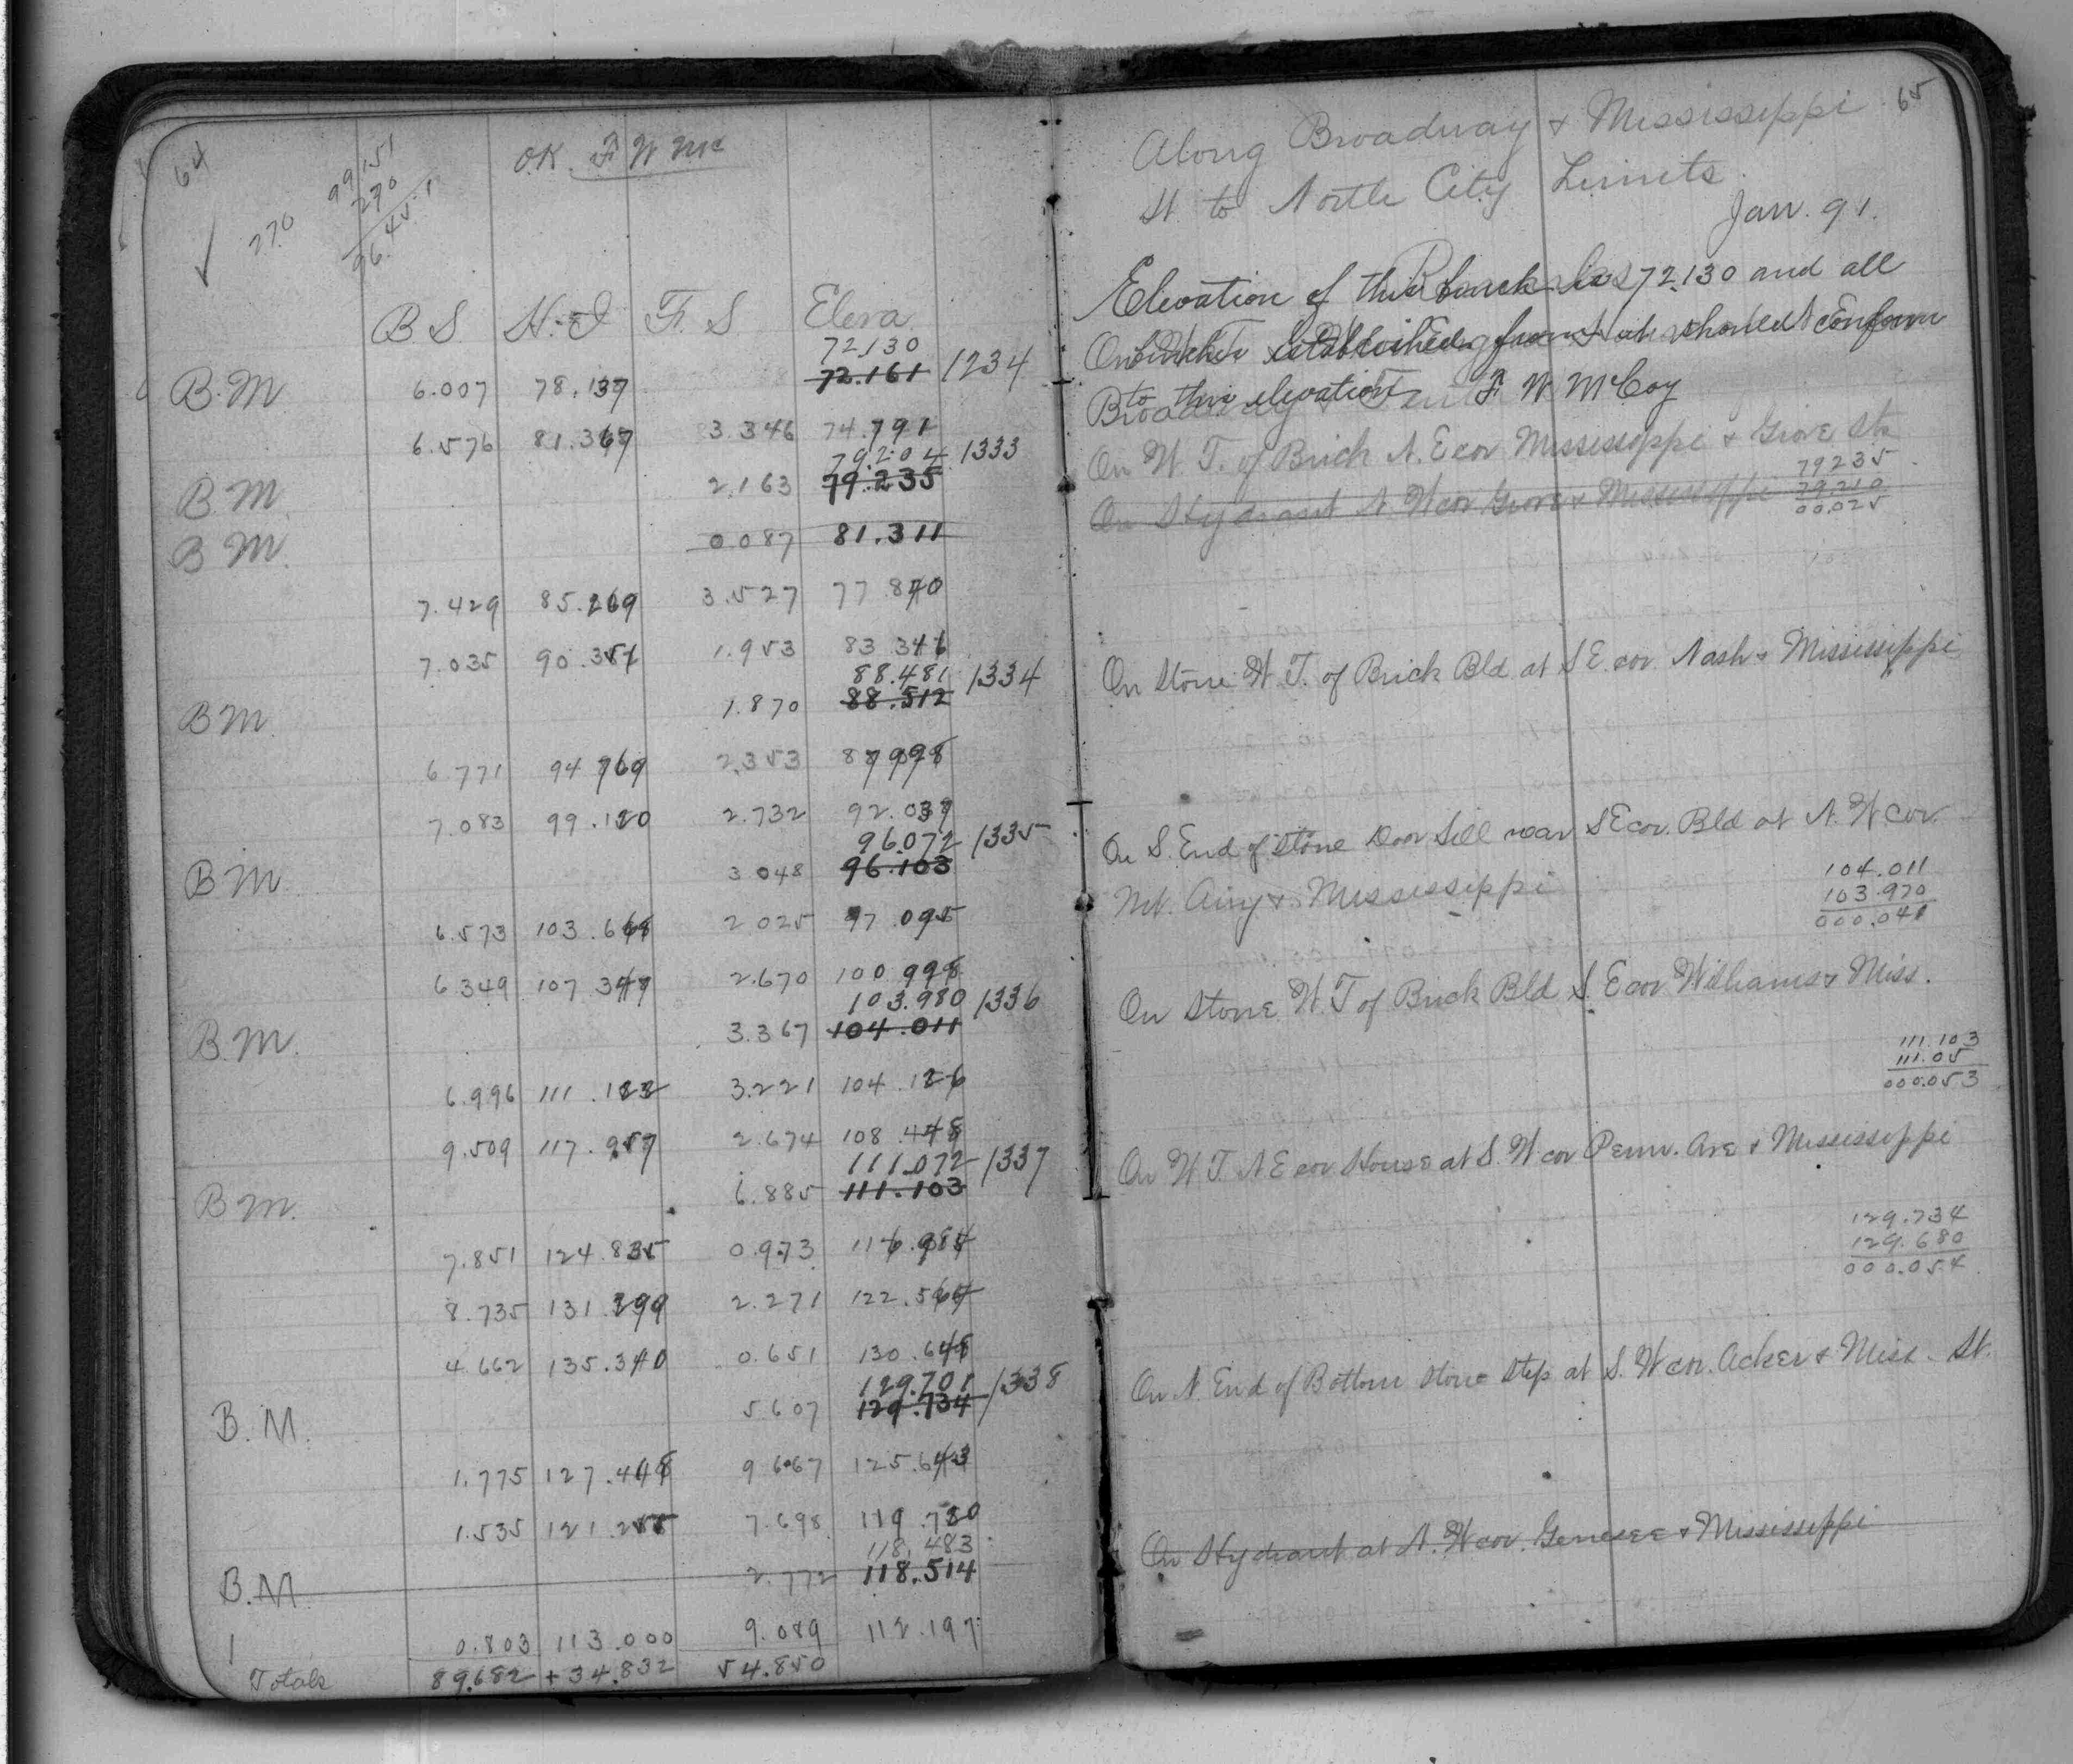 64
270
99151
270
96.45.1
O.K. F W Mc
B S H.I F. S Eleva.
72.130
B.M 6.007 78.137 72.161 1234
6.576 81.367 3.346 74.791
79.204 1333
B M. 2.163 79.235
B M. 0.087 81.311
7.429 85.269 3.527 77 840
7.035 90.351 1.953 83 316
88.481 1334
B M. 1.870 88.512
6 771 94 769 2.353 87 998
7.083 99.120 2.732 92.037
96.072 1335
B M. 3 048 96.103
6.573 103.668 2 025 97.095
6 349 107 347 2.670 100 998
103.980 1336
B.M. 3.367 104.011
6.996 111.122 3.221 104.126
9.509 117.957 2.674 108.448
111.072 1337
B m. 6.885 111.103
7.851 124.835 0.973 116.984
8.735 131.299 2.271 122.564
4 662 135.310 0.651 130.648
129.701 1338
B. M. 5 607 129.734
1.775 127.418 9 667 125.643
1.535 121.255 7.698 119.720
118.483
B. M. 2.772 118.514
1 0.803 113.000 9.089 112.197
Totals 89.682 + 34.832 54.850
65
Along Broadway & Mississippi
St. to North City Limits.
Jan. 91.
Elevation of this bench is 72.130 and all
benches established from it should conform
to this elevation F. W McCoy
On W. T. of Brick N. E cor Mississippi & Grove Sts
79235
On Hydrant N Wcor Grove & Mississippi 79.210
00.025
On Stone W. T. of Brick Bld at S E. cor. Nash & Mississippi
On S. End of stone Door Sill near S E cor. Bld at N. W cor.
Mt. Airy & Mississippi
104.011
103.970
000.041
On Stone W. T of Brick Bld S. E cor Williams & Miss.
111.103
111.05
000.053
On W T. N E cor House at S. W cor Penn. Ave & Mississippi
129.734
129.680
000.054
On N. End of Bottom stone step at S. W cor. Acker & Miss. St.
On Hydrant at N. W cor. Genesee & Mississippi